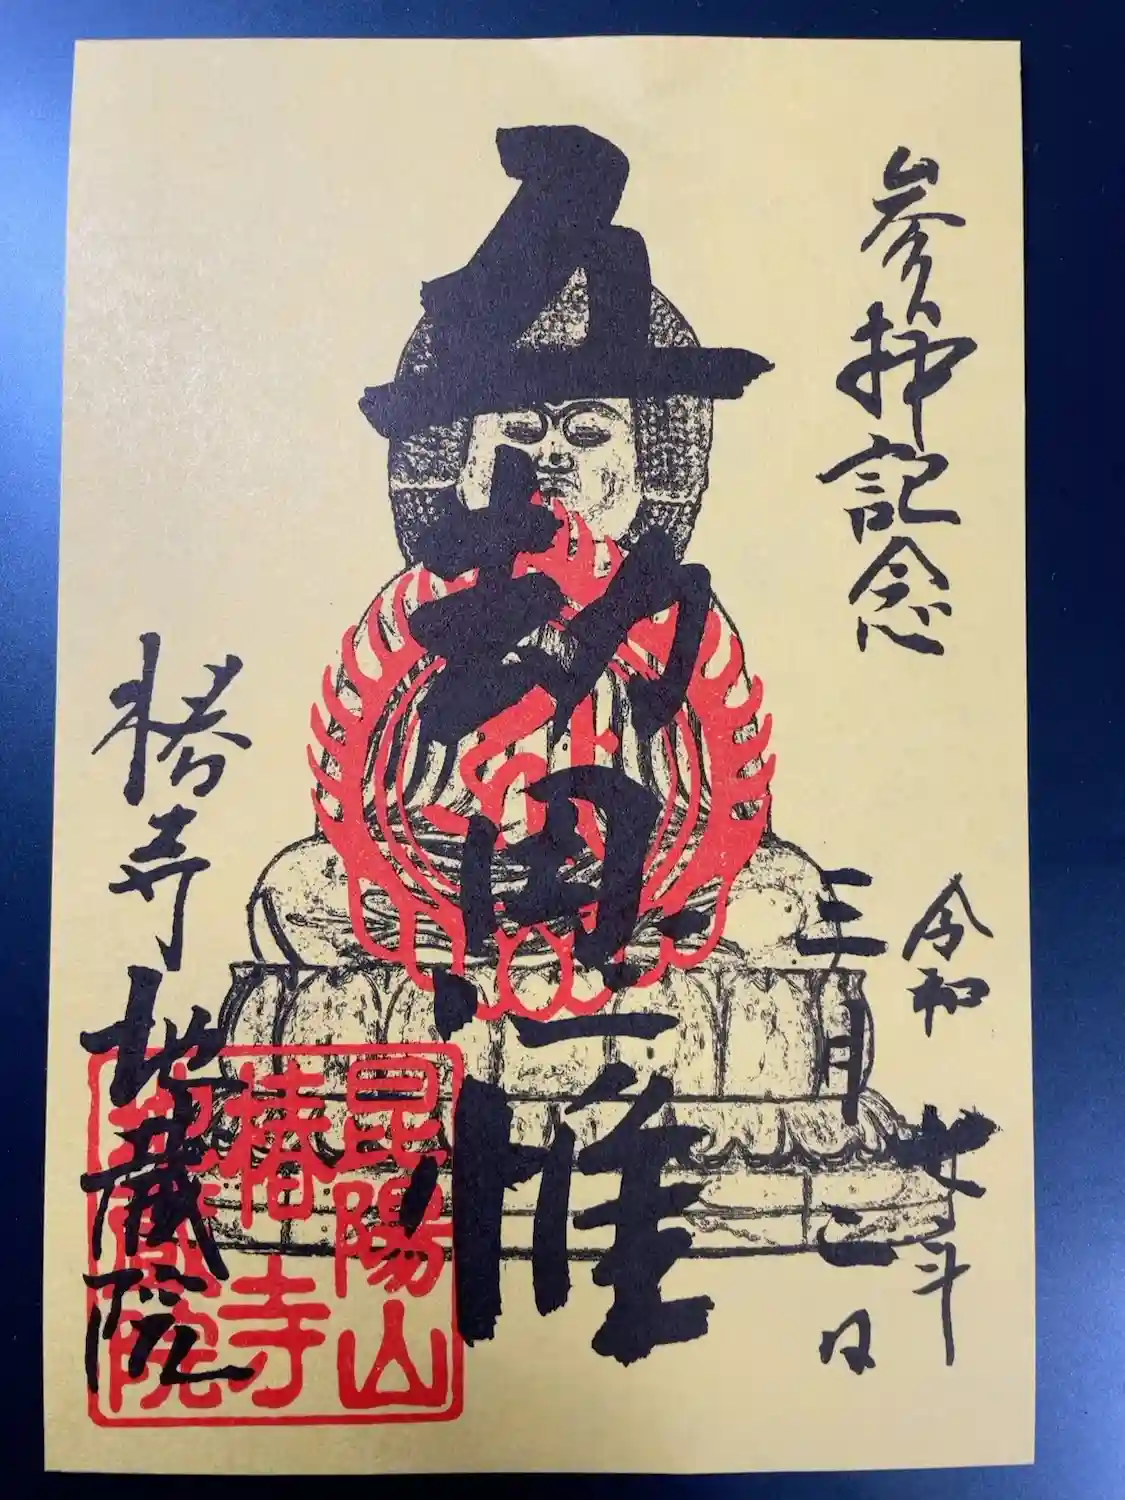 参拝記念
令和七年
三月二日
五劫思惟
椿寺地蔵院
昆陽山
椿寺
地蔵院